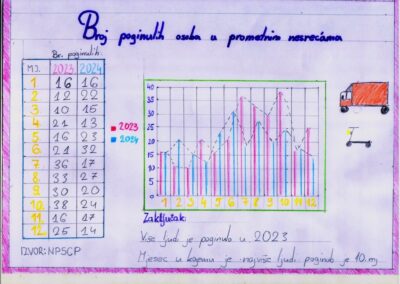 Broj poginulih osoba u prometnim nesrećama
Br. poginulih:
MJ. 2023 2024
1 16 16
2 12 22
3 10 15
4 21 13
5 16 23
6 21 32
7 36 17
8 33 27
9 30 20
10 38 24
11 16 17
12 25 14
IZVOR: NPSCP
40
35
30
25
20
15
10
5
0
1 2 3 4 5 6 7 8 9 10 11 12
2023
2024
Zaključak:
Više ljudi je poginulo u 2023
Mjesec u kojemu je najviše ljudi poginulo je 10. mj